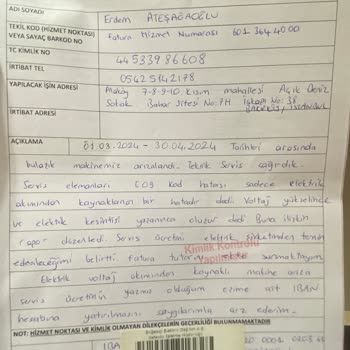 ADI SOYADI
Erdem ATEŞAĞAOĞLU
TEKİL KOD (HİZMET NOKTASI) VEYA SAYAÇ BARKOD NO
Fatura Hizmet Numarası 601 364 40 00
TC KİMLİK NO
44533986608
İRTİBAT TEL
05425142178
YAPILACAK İŞİN ADRESİ
Ataköy 7-8-9-10. Kısım mahallesi Açık Deniz
Sokak Bahar Sitesi No: 7H İçkapı No: 38
BAKIRKÖY/İSTANBUL
İRTİBAT ADRESİ
AÇIKLAMA
01.03.2024 - 30.04.2024 Tarihleri arasında
bulaşık makinemiz arızalandı. Teknik Servis çağırdık.
Servis elemanları E09 Kod hatası sadece elektrik
akımından kaynaklanan bir hatadır dedi. Voltaj yükselince
ve elektrik kesintisi yaşanınca oluşur dedi. Buna ilişkin
rapor düzenledi. Servis ücretini elektrik şirketinden temin
edebileceğimi belirtti fatura tutarını ekte sunmaktayım.
Kimlik Kontrolü
Yapılmıştır
Elektrik voltaj akımından kaynaklı makine arıza
servis ücretinin yazmış olduğum eşime ait IBAN
hesabına yatırılmasını saygılarımla arz ederim.
NOT: HİZMET NOKTASI VE KİMLİK OLMAYAN DİLEKÇELERİN GEÇERLİLİĞİ BULUNMAMAKTADIR
IBA